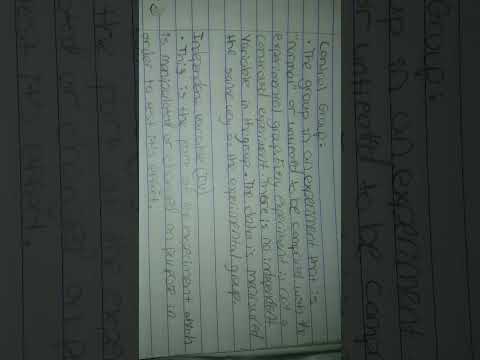 Control Group:
• The group in an experiment that is
"normal" or untreated to be compared with the
experimental group. Every experiment is called a
controlled experiment. There is no independent
variable in this group. The DV is measured
the same way as the experimental group.
Independent variable (IV)
• This is the part of the experiment which
is manipulated or changed on purpose in
order to test its effect.